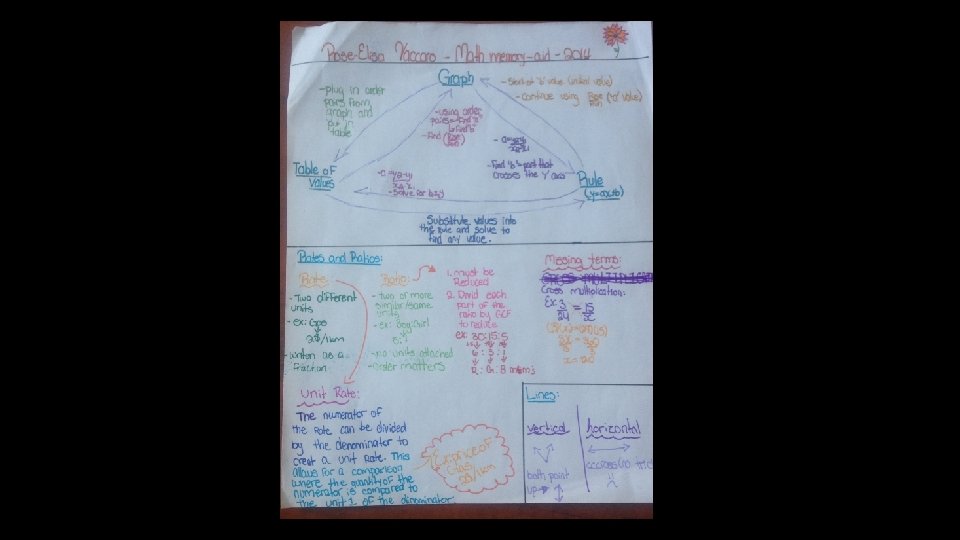 Rose-Elisa Vaccaro - Math memory-aid - 2014
Graph
- Start at "b" value (initial value)
- continue using Rise/Run ("a" value)
- plug in order
pairs from
graph and
put in
table
- using order
pairs
- Find (Rise/Run)
- Find "b" = part that
crosses the y axis
Table of
Values
- Solve for b
Rule
(y=ax+b)
Substitute values into
the rule and solve to
find any value.
Rates and Ratios:
Rate:
- Two different
units
- ex:
2$/1km
- written as a
fraction
Ratio:
- two or more
similar/same
units
- ex: Boy:Girl
- no units attached
- order matters
1. must be
Reduced
2. Divid each
part of the
ratio by GCF
to reduce
ex: 30:15:5
6:3:1
R:G:B
Missing terms:
Cross multiplication:
Ex: 3/24 = 15/x
Unit Rate:
The numerator of
the Rate can be divided
by the denominator to
creat a unit Rate. This
allows for a comparison
where the quantity of the
numerator is compared to
the unit 1 of the denominator.
Ex: price of
2$/1km
Lines:
vertical
both point
up
horizontal